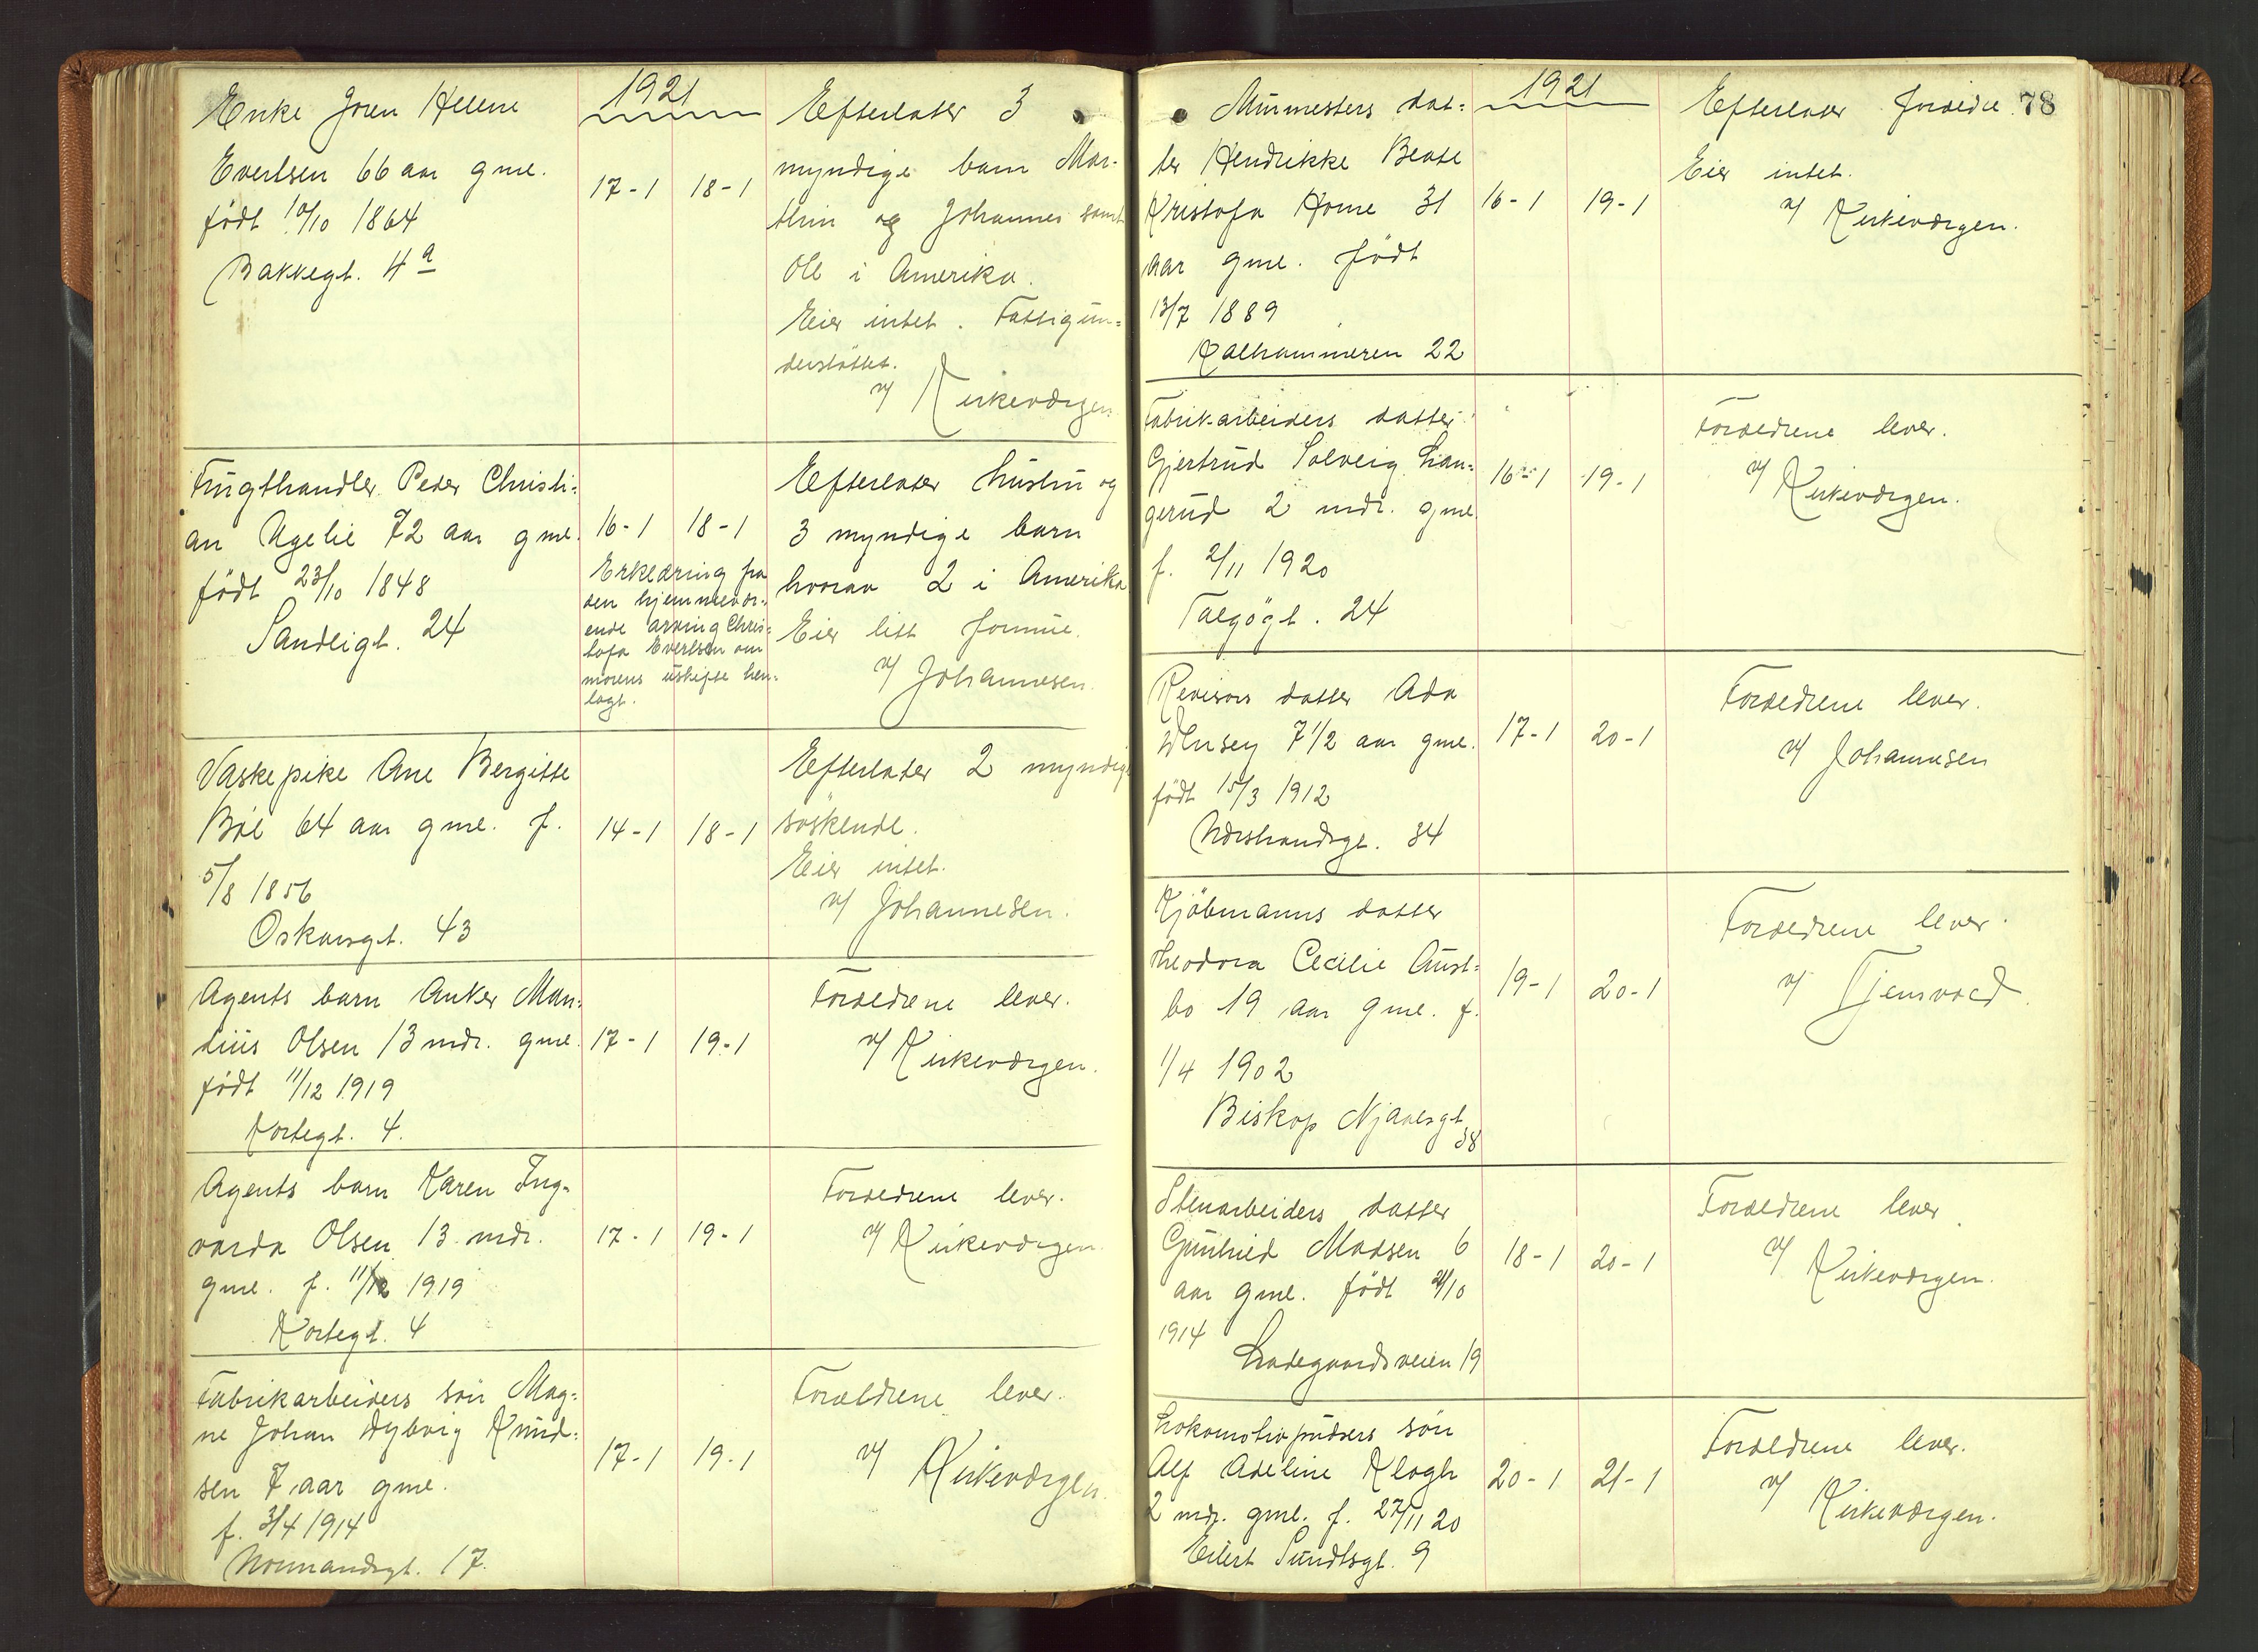 1921
Enke Joren Helene
Evertsen 66 aar gml.
født 10/10 1864
Bakkegt. 4a
17-1 18-1
Efterlater 3
myndige barn Mar-
thin og Johannes samt
Ole i Amerika.
Eier intet. Fattigun=
derstøttet.
v/ Kirkeværgen
Frugthandler Peder Christi=
an Ugelie 72 aar gml.
født 23/10 1848
Sandeigt. 24
16-1 18-1
Erklæring fra
den hjemmevær-
ende arving Chris=
tofa Evertsen om
morens uskifte hen-
lagt.
Efterlater hustru og
3 myndige barn
hvorav 2 i Amerika
Eier litt formue.
v/ Johannesen.
Vaskepike Ane Bergitte
Böe 64 aar gml. f.
5/8 1856
Oskarsgt. 43
14-1 18-1
Efterlater 2 myndige
söskende.
Eier intet.
v/ Johannesen.
Agents barn Anker Man=
dius Olsen 13 mdr. gml.
født 11/12 1919
Kortegt. 4.
17-1 19-1
Forældrene lever.
v/ Kirkeværgen.
Agents barn Karen Ing-
varda Olsen 13 mdr.
gml. f. 11/12 1919
Kortegt. 4
17-1 19-1
Forældrene lever.
v/ Kirkeværgen
Fabrikarbeiders sön Mag=
ne Johan Dybvig Knud=
sen 7 aar gml.
f. 3/4 1914
Normandsgt. 17.
17-1 19-1
Forældrene lever.
v/ Kirkeværgen.
1921
78
Murmesters dat=
ter Hendrikke Beate
Kristofa Horne 31
aar gml. født
13/7 1889
Kalhammeren 22
16-1 19-1
Efterlater forældre.
Eier intet.
v/ Kirkeværgen.
Fabrik-arbeiders datter
Gjertrud Solveig Lian=
gerud 2 mdr. gml.
f. 2/11 1920
Talgögt. 24
16-1 19-1
Forældrene lever.
v/ Kirkeværgen.
Revisors datter Ada
7 1/2 aar gml.
født 15/3 1912
Nørstrandsgt. 34
17-1 20-1
Forældrene lever.
v/ Johannesen
Kjöbmanns datter
Theodora Cecilie Aust=
bo 19 aar gml. f.
1/4 1902
Biskop Njaalsgt.
38
19-1 20-1
Forældrene lever.
v/ Tjensvold
Stenarbeiders datter
Gunhild Madsen 6
aar gml. født /10
1914
Ladegaardsveien 19
18-1 20-1
Forældrene lever.
v/ Kirkeværgen.
Lokomotivpudsers sön
Alf Adeline Klogh
2 mdr. gml. f. 27/11 20
Eilert Sundtsgt. 9
20-1 21-1
Forældrene lever.
v/ Kirkeværgen.